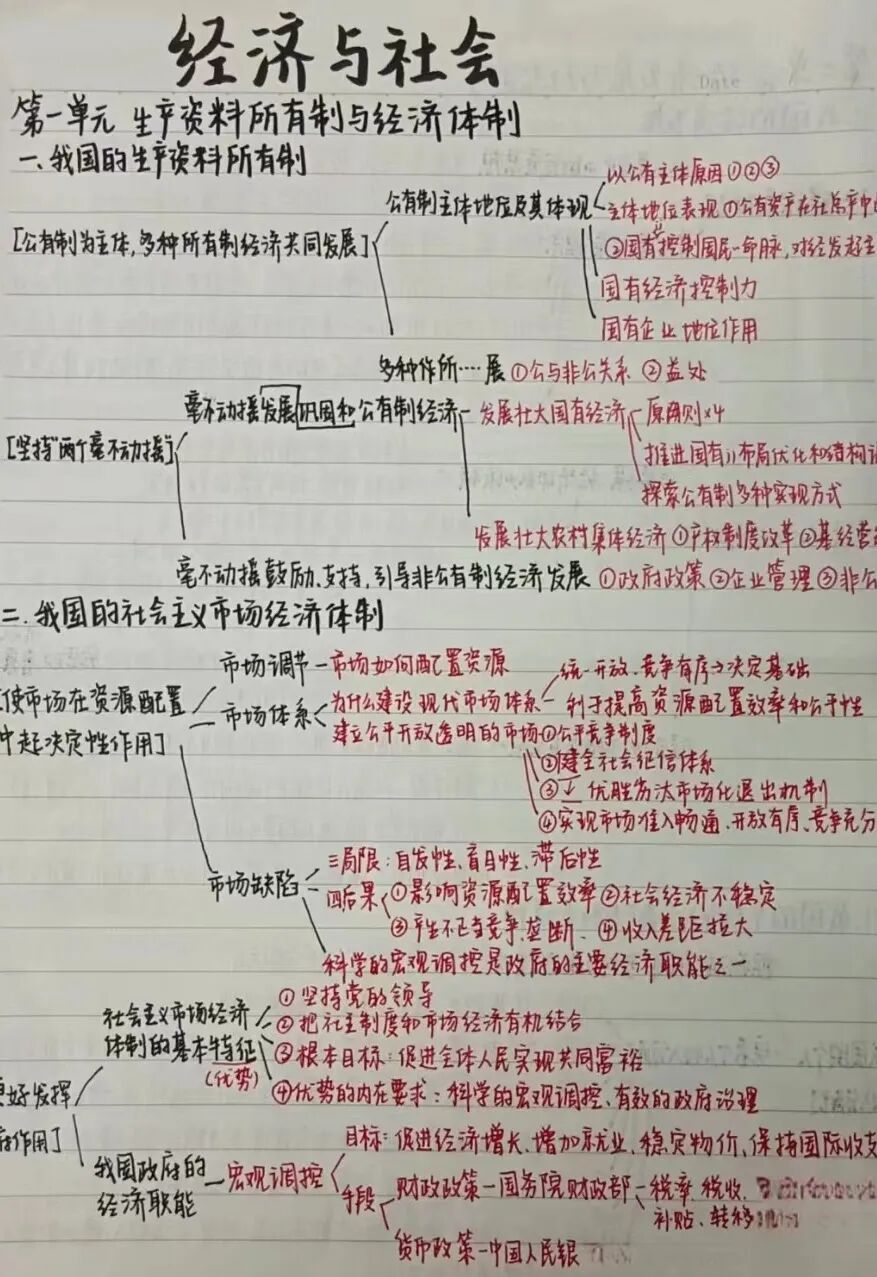 经济与社会
第一单元 生产资料所有制与经济体制
一、我国的生产资料所有制
以公有主体原因①②③
公有制主体地位及其体现
主体地位表现①公有资产在社总产中
[公有制为主体,多种所有制经济共同发展]
②国有控制国民一命脉,对经发起主
国有经济控制力
国有企业地位作用
多种作所····展 ①公与非公关系 ②益处
毫不动摇发展巩固和公有制经济
发展壮大国有经济 原则x4
[坚持"两个毫不动摇]
推进国有 布局优化和结构
探索公有制多种实现方式
发展壮大农村集体经济 ①产权制度改革②基经营
毫不动摇鼓励、支持,引导非公有制经济发展 ①政府政策②企业管理③非公
二.我国的社会主义市场经济体制
市场调节-市场如何配置资源
统一开放、竞争有序→决定基础
使市场在资源配置
中起决定性作用]
市场体系
为什么建设现代市场体系
利于提高资源配置效率和公平性
建立公平开放透明的市场①公平竞争制度
②健全社会征信体系
③ 优胜劣汰市场化退出机制
④实现市场准入畅通、开放有序、竞争充分
市场缺陷
三局限:自发性、盲目性、滞后性
四后果 ①影响资源配置效率 ②社会经济不稳定
③产生不正当竞争、垄断、 ④收入差距拉大
科学的宏观调控是政府的主要经济职能之一
社会主义市场经济
体制的基本特征
(优势)
①坚持党的领导
②把社主制度和市场经济有机结合
③根本目标:促进全体人民实现共同富裕
④优势的内在要求:科学的宏观调控、有效的政府治理
好发挥
府作用]
我国政府的
经济职能
宏观调控
目标:促进经济增长、增加就业、稳定物价、保持国际收支
手段
财政政策-国务院财政部-税率 税收、
补贴、转移
货币政策-中国人民银